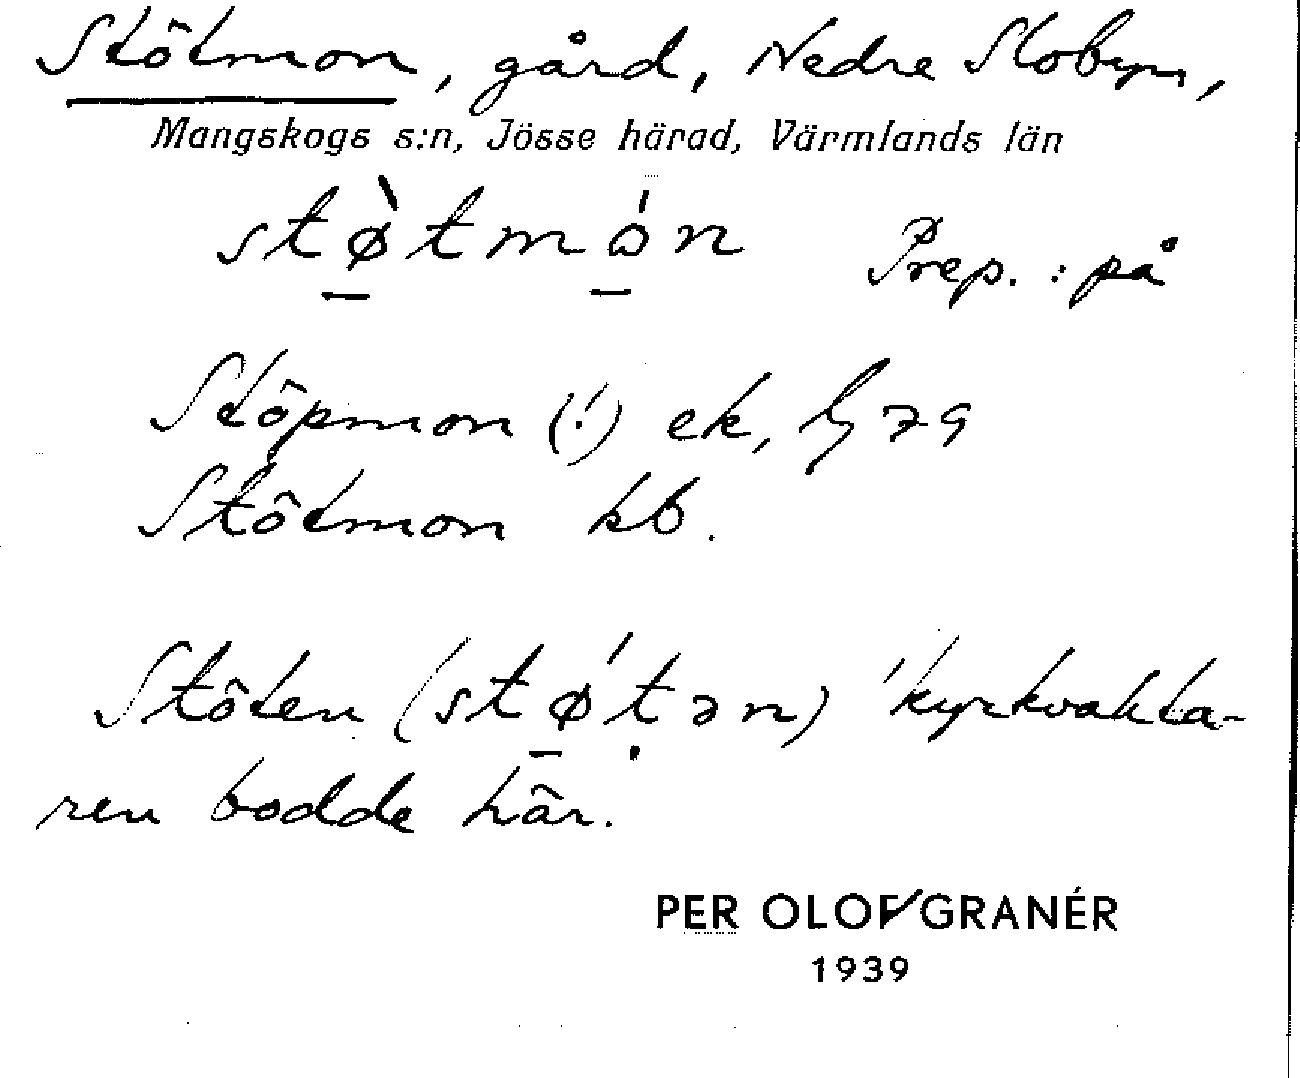 Stötmon, gård, Nedre Slobyn,
Mangskogs s:n, Jösse härad, Värmlands län
stø̀tmɔ́n Prep. : på
Stöpmon (!) ek, G 79
Stötmon kb.
Stöten (stǿtən) 'kyrkvakta-
ren bodde här.
PER OLOF GRANÉR
1939